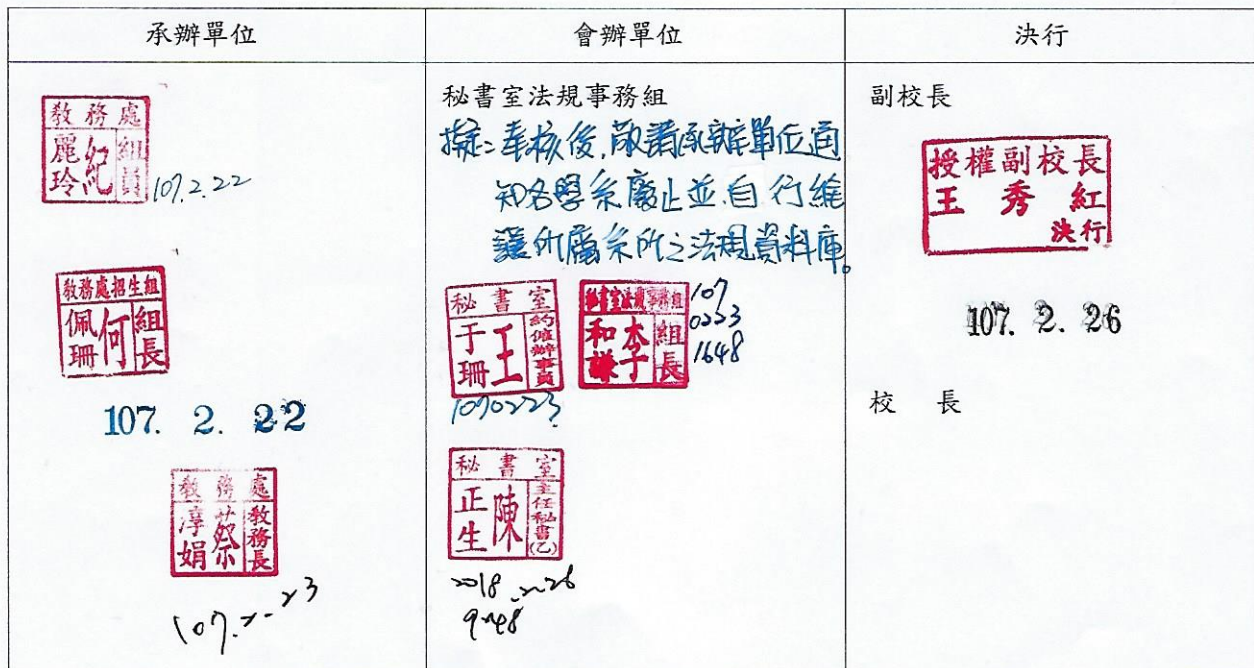 承辦單位
會辦單位
決行
教務處
組員
紀麗玲
107.2.22
教務處招生組
組長
何佩珊
107. 2. 22
教務處
教務長
蔡淳娟
107.2.23
秘書室法規事務組
擬:奉核後,敬請承辦單位通
知各學系廢止並自行維
護所屬系所之法規資料庫。
秘書室
約僱辦事員
王于珊
1070223
秘書室法規事務組
組長
李和謙
107
0223
1648
秘書室
主任秘書(乙)
陳正生
2018.2.26
副校長
授權副校長
王秀紅
決行
107. 2. 26
校長